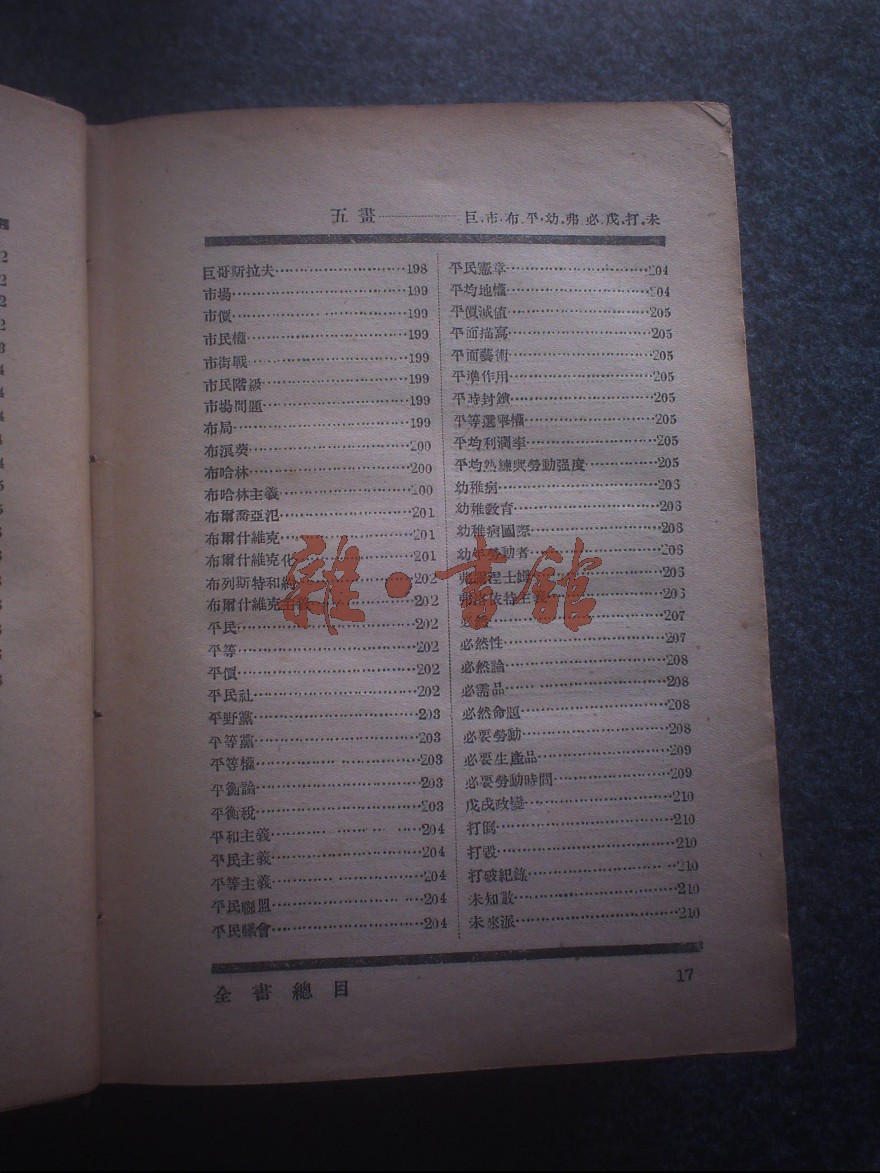 五畫………………巨.市.布.平.幼.弗.必.戊.打.未
巨哥斯拉夫………198
市場………199
市價………199
市民權………199
市街戰………199
市民階級………199
市場問題………199
布局………199
布滾葵………200
布哈林………200
布哈林主義………200
布爾喬亞氾………201
布爾什維克………201
布爾什維克化………201
布列斯特和約………202
布爾什維克主義………202
平民………202
平等………202
平價………202
平民社………202
平野黨………203
平等黨………203
平等權………203
平衡論………203
平衡稅………203
平和主義………204
平民主義………204
平等主義………204
平民聯盟………204
平民議會………204
平民憲章………204
平均地權………204
平價減值………205
平面描寫………205
平面藝術………205
平準作用………205
平時封鎖………205
平等選舉權………205
平均利潤率………205
平均熟練與勞動强度………205
幼稚病………206
幼稚教育………206
幼稚病國際………206
幼年勞動者………206
士………206
弗洛依特主義………206
必………207
必然性………207
必然論………208
必需品………208
必然命題………208
必要勞動………208
必要生產品………209
必要勞動時間………209
戊戌政變………210
打倒………210
打毀………210
打破紀錄………210
未知數………210
未來派………210
全書總目
17
雜·書館